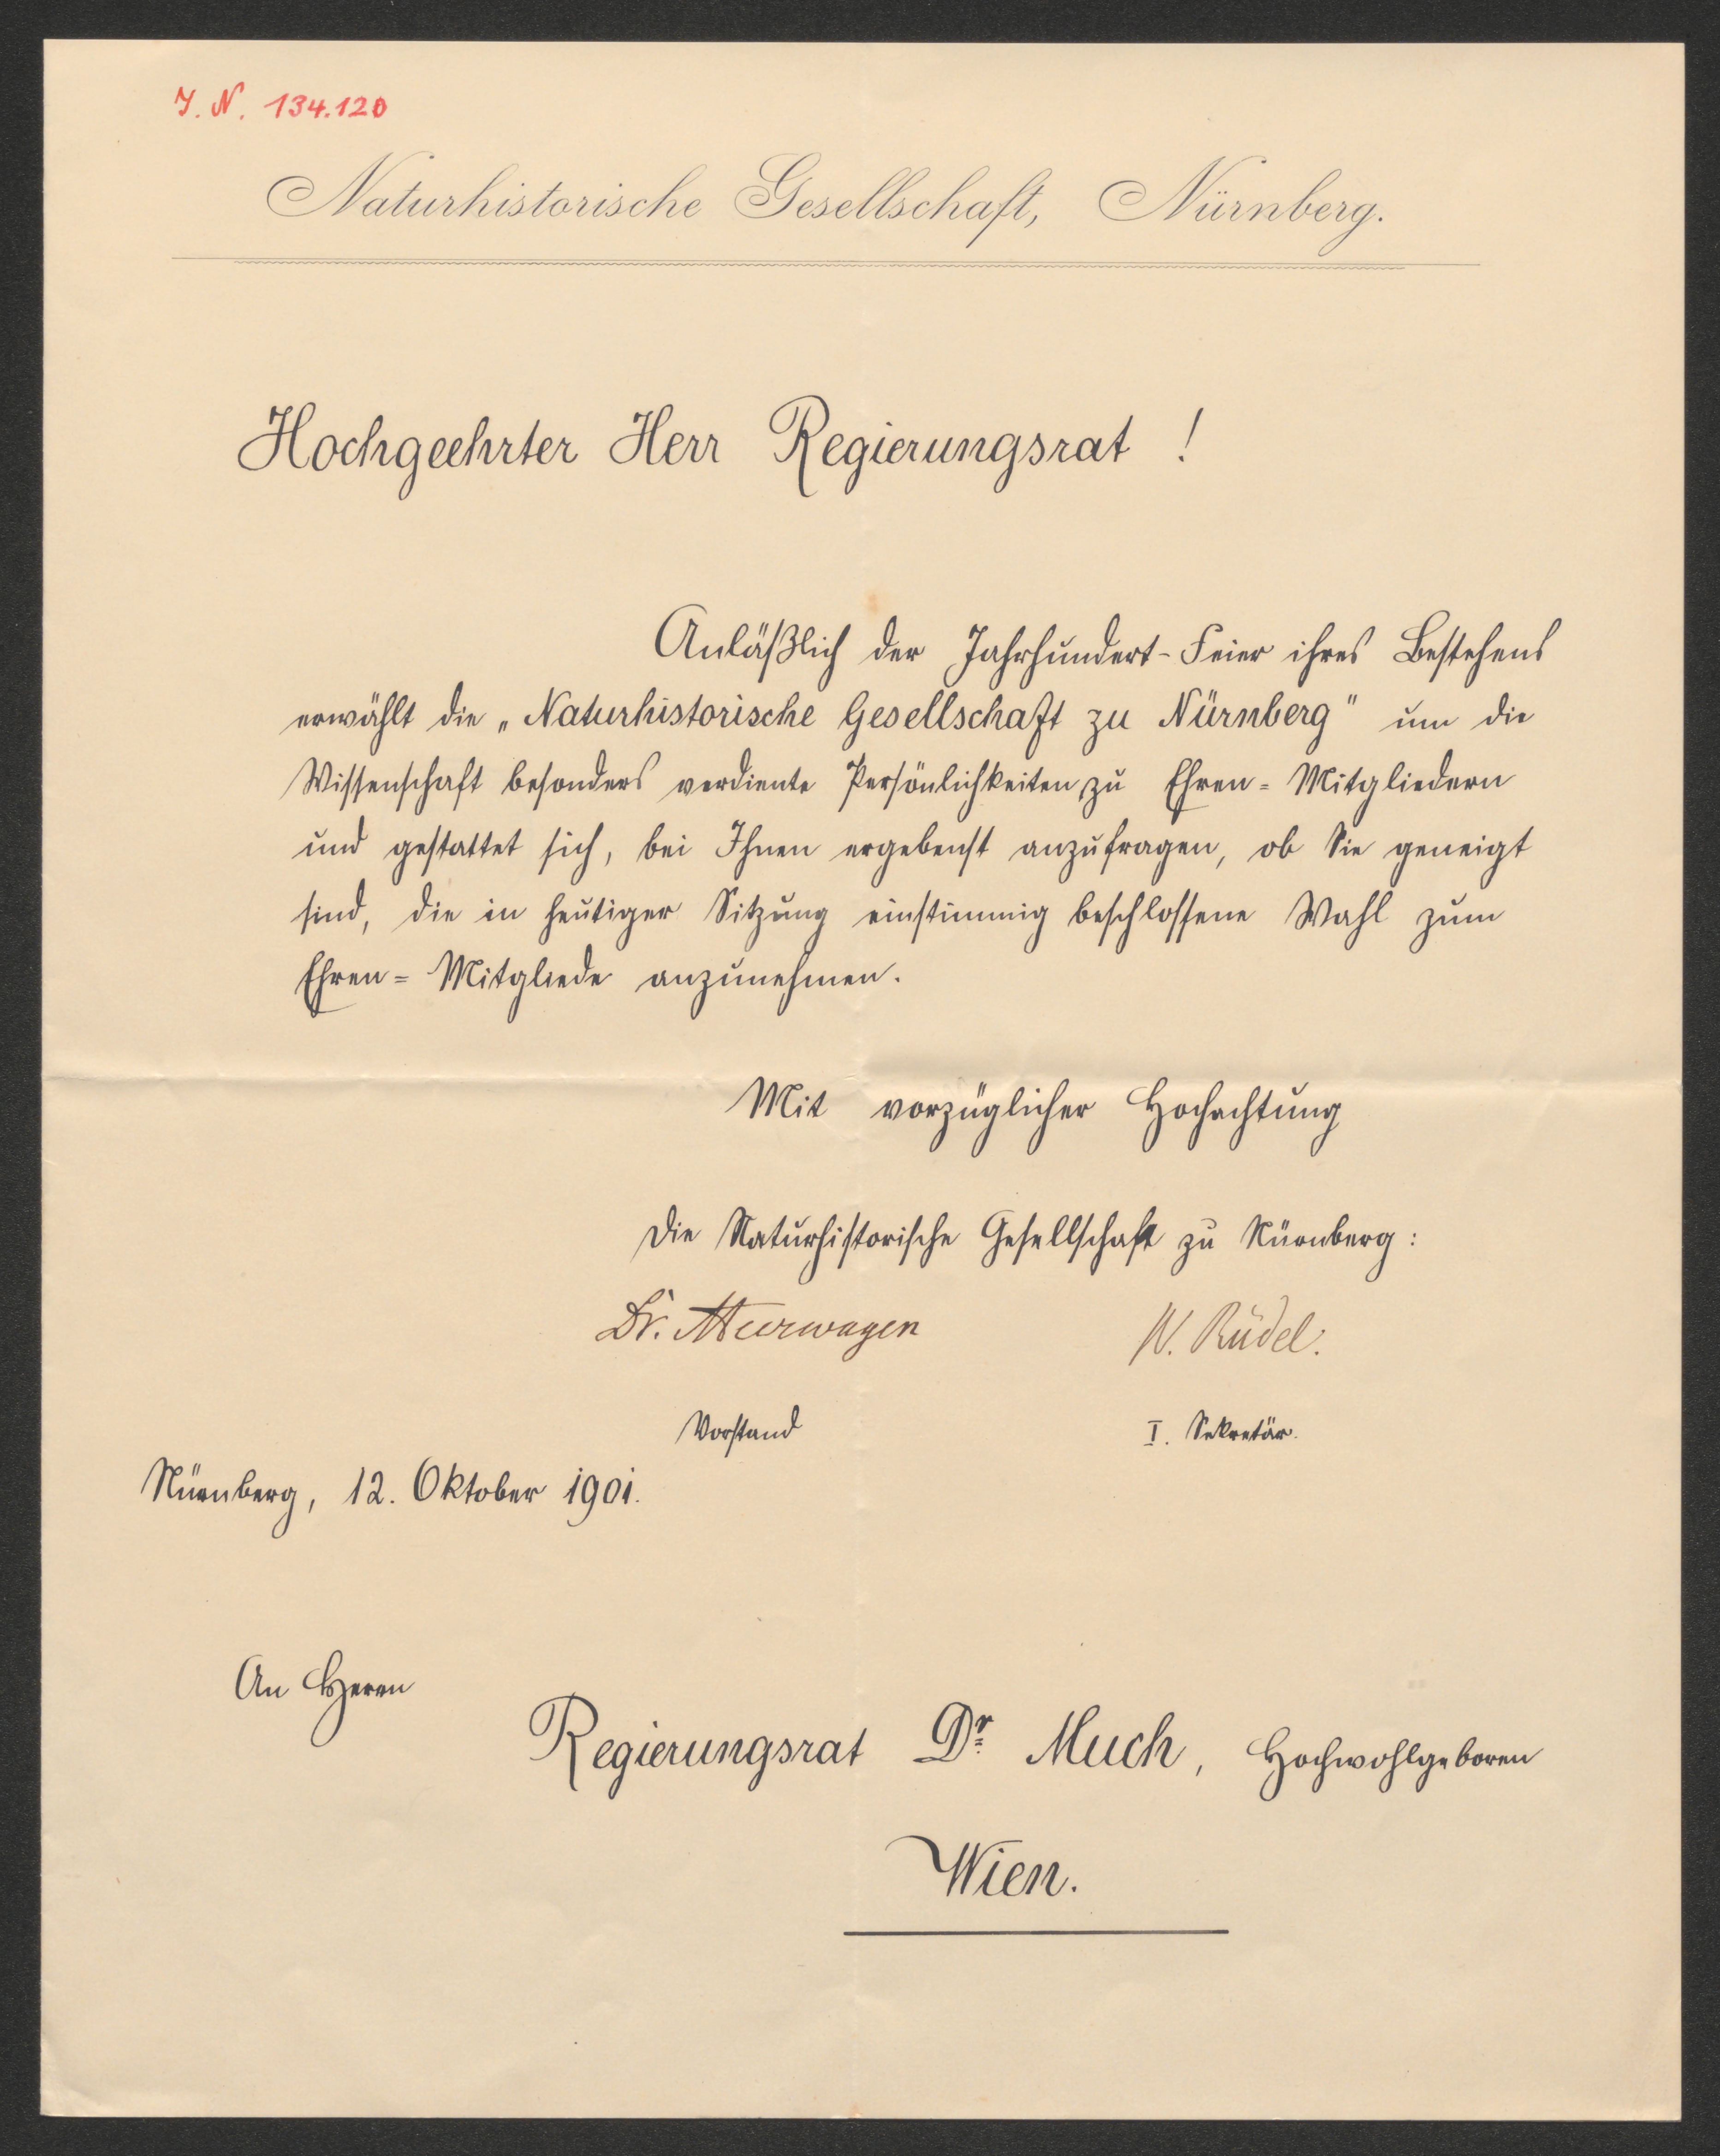 J. N. 134.120
Naturhistorische Gesellschaft, Nürnberg.
Hochgeehrter Herr Regierungsrat !
Anläßlich der Jahrhundert-Feier ihres Bestehens
erwählt die „Naturhistorische Gesellschaft zu Nürnberg" um die
Wissenschaft besonders verdiente Persönlichkeiten zu Ehren=Mitgliedern
und gestattet sich, bei Ihnen ergebenst anzufragen, ob Sie geneigt
sind, die in heutiger Sitzung einstimmig beschlossene Wahl zum
Ehren=Mitgliede anzunehmen.
Mit vorzüglicher Hochachtung
Die Naturhistorische Gesellschaft zu Nürnberg:
Dr. W. Rüdel.
Vorstand I. Sekretär.
Nürnberg, 12. Oktober 1901.
An Herrn
Regierungsrat Dr Much, Hochwohlgeboren
Wien.